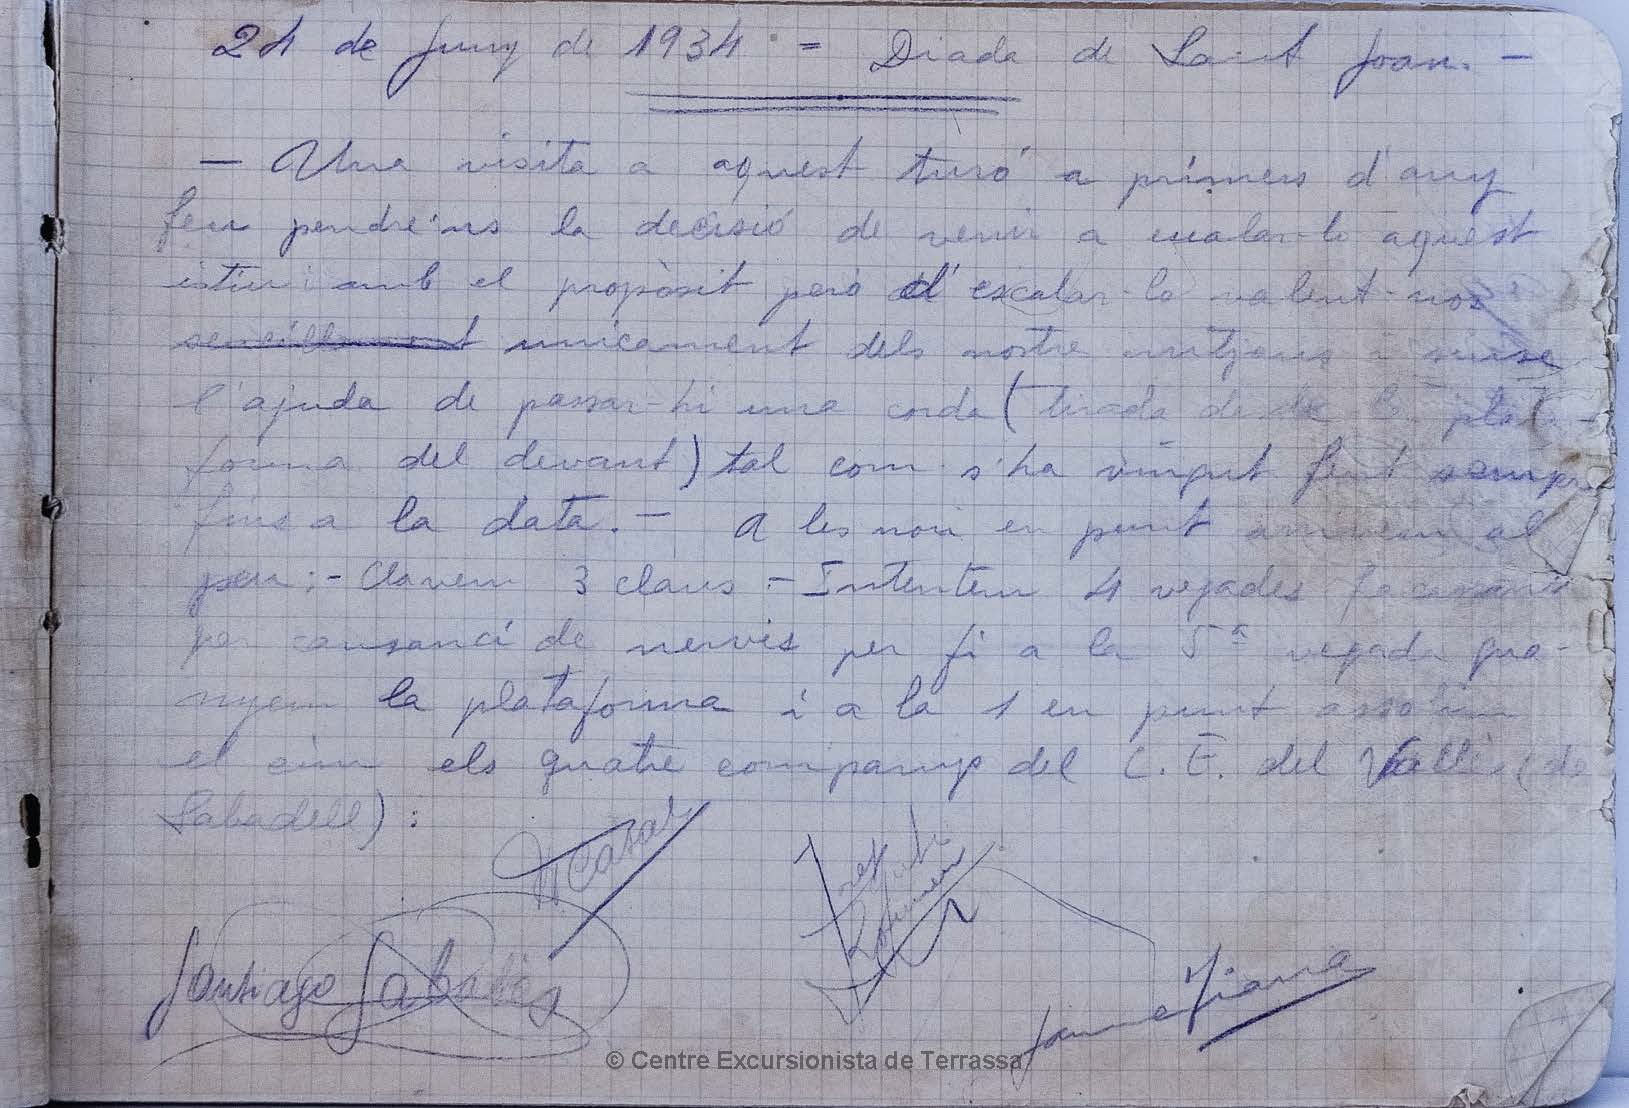 24 de Juny de 1934 = Diada de Sant Joan. -
- Una visita a aquest turó a primers d'any
feu pendre'ns la decisió de venir a escalar-lo aquest
istiu i amb el propòsit però d'escalar-lo valent-nos
sencillament unicament dels nostre mitjans i sense
l'ajuda de passar-hi una corda (tirada desde la plata-
forma del devant) tal com s'ha vingut fent sempre
fins a la data. - A les nou en punt arrivem al
peu: - Clavem 3 claus: - Intentem 4 vegades
per cansanci de nervis per fi a la 5ª vegada gua-
nyem la plataforma i a la 1 en punt assolim
el cim els quatre companys del C. E. del Vallès (de
Sabadell):
Casas
Santiago
Jaume Viana
© Centre Excursionista de Terrassa